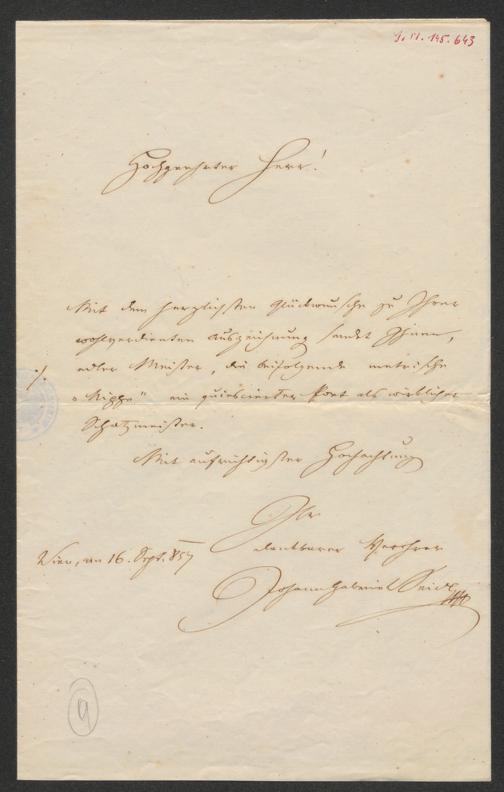 J.N. 145.643
Hochgeehrter Herr!
Mit dem herzlichsten Glückwunsche zu Ihrer
wohlverdienten Auszeichnung sendet Ihnen,
edler Meister, die beifolgende metrische
./.
„Nippe" ein quiescierter Poet als wirklicher
Schatzmeister.
Mit aufrichtigster Hochachtung
Ihr
dankbarer Verehrer
Wien, am 16. Sept. 857
Johann Gabriel Seidl
9